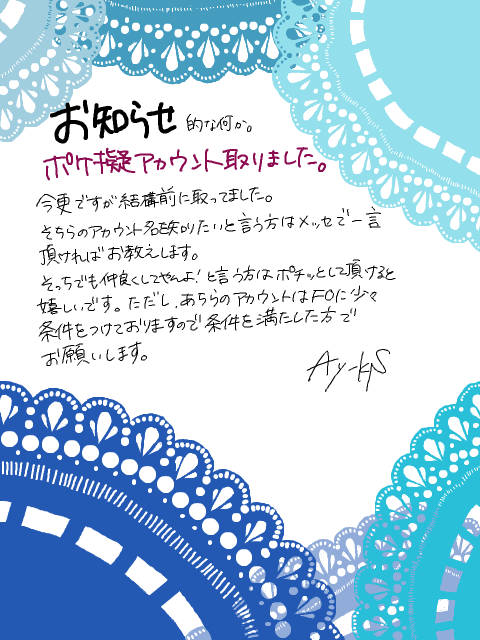 お知らせ 的な何か。
ポケ擬アカウント取りました。
今更ですが結構前に取ってました。
そちらのアカウント名を知りたいと言う方はメッセで一言
頂ければお教えします。
そっちでも仲良くしてやんよ!と言う方はポチッとして頂けると
嬉しいです。ただし、あちらのアカウントはFOに少々
条件をつけておりますので条件を満たした方で
お願いします。